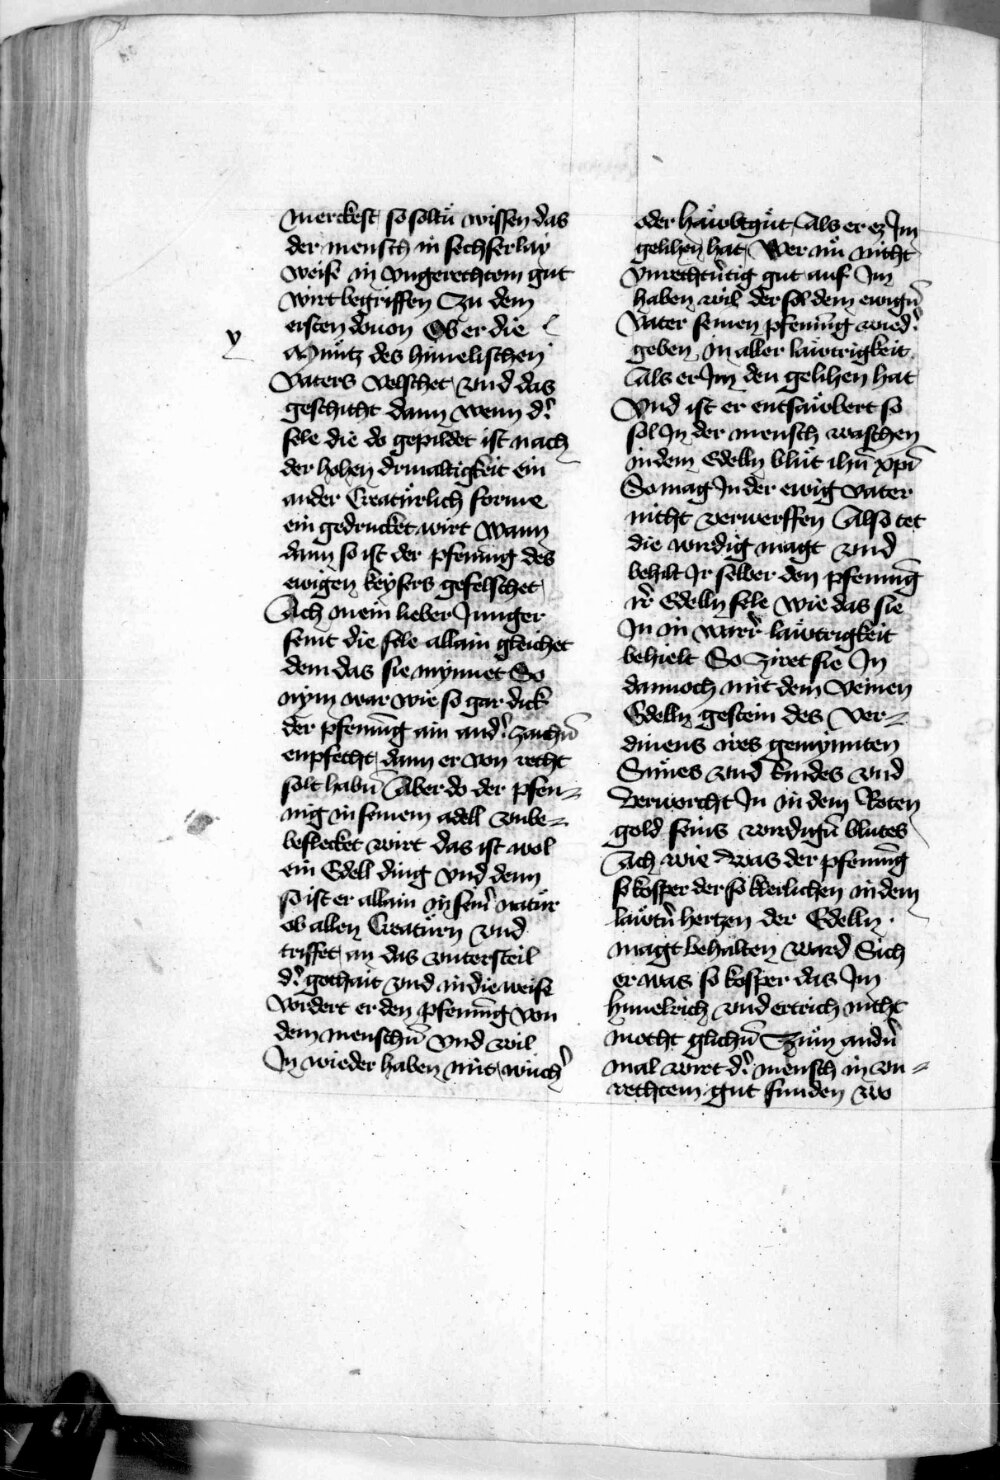 merckest so soltu̇ wissen das
der mensch in sechserlay
weise in vngerechtem gut
wirt begriffen Zu dem
ersten douon Ob er die
y
Mu̇ntz des himelischen
Vaters velschet vnd das
geschicht dann wenn d'
sele die do gepildet ist nach
der hohen drinaltigkeit ein
ander Creatu̇rlich forme
ein gedrucket wirt Wann
dann so ist der pfenni̅g des
ewigen keysers gefelschet
Ach mein lieber Junger
seint die sele allain gleichet
dem das sie mynnet So
nym war wie so gar dick
der pfenni̅g ain and' zaich̅n
enpfecht dann er von recht
solt habn̅ Aber do der pfen=
nig in seinem adell vnbe=
beflecket wirt das ist wol
ein Edell ding vnd denn
so ist er allain in sein' natu̇r
ob allen Creatu̇rn vnd
triffet an das vntersteil
d' gothait vnd in die weise
vodert er den pfenni̅g von
dem menschn̅ vnd wil
In wieder haben mit wuch'
oder hau̇btgu̇t Als er ez Im
gelihen hat Wer nu̇ nicht
vnrechtu̇tig gut auf Im
haben wil der sol dem ewign̅
Vater seinen pfenni̅g wied'
geben in aller lau̇trigkeit
Als er Im den gelihen hat
Vnd ist er entsau̇bert so
sol In der mensch waschen
in dem Edelln blu̇t ihu̅ xp̅i
So mag In der ewig vater
nicht verwerffen Also tet
die wirdig magt vnd
behilt Ir selber den pfenni̅g
ir' Edelln sele Wie das sie
In in warr' lau̇trigkeit
behielt So ziret sie In
dannoch mit dem Veinen
Edelln gestein des Ver=
dinens ires gemynnten
Su̇nes vnd kindes vnd
Verworcht In in dem Roten
gold seins wirdign̅ blutes
Ach wie was der pfenni̅g
so kosper der so klerlichen in dem
lau̇tn̅ hertzen der Edelln
magt behalten ward Sich
er was so kosper das Im
himelrich vnd ertrich nicht
mocht glichn̅ Zu̇m andn̅
mal wirt d' mensch in vn=
rechtem gut funden wo